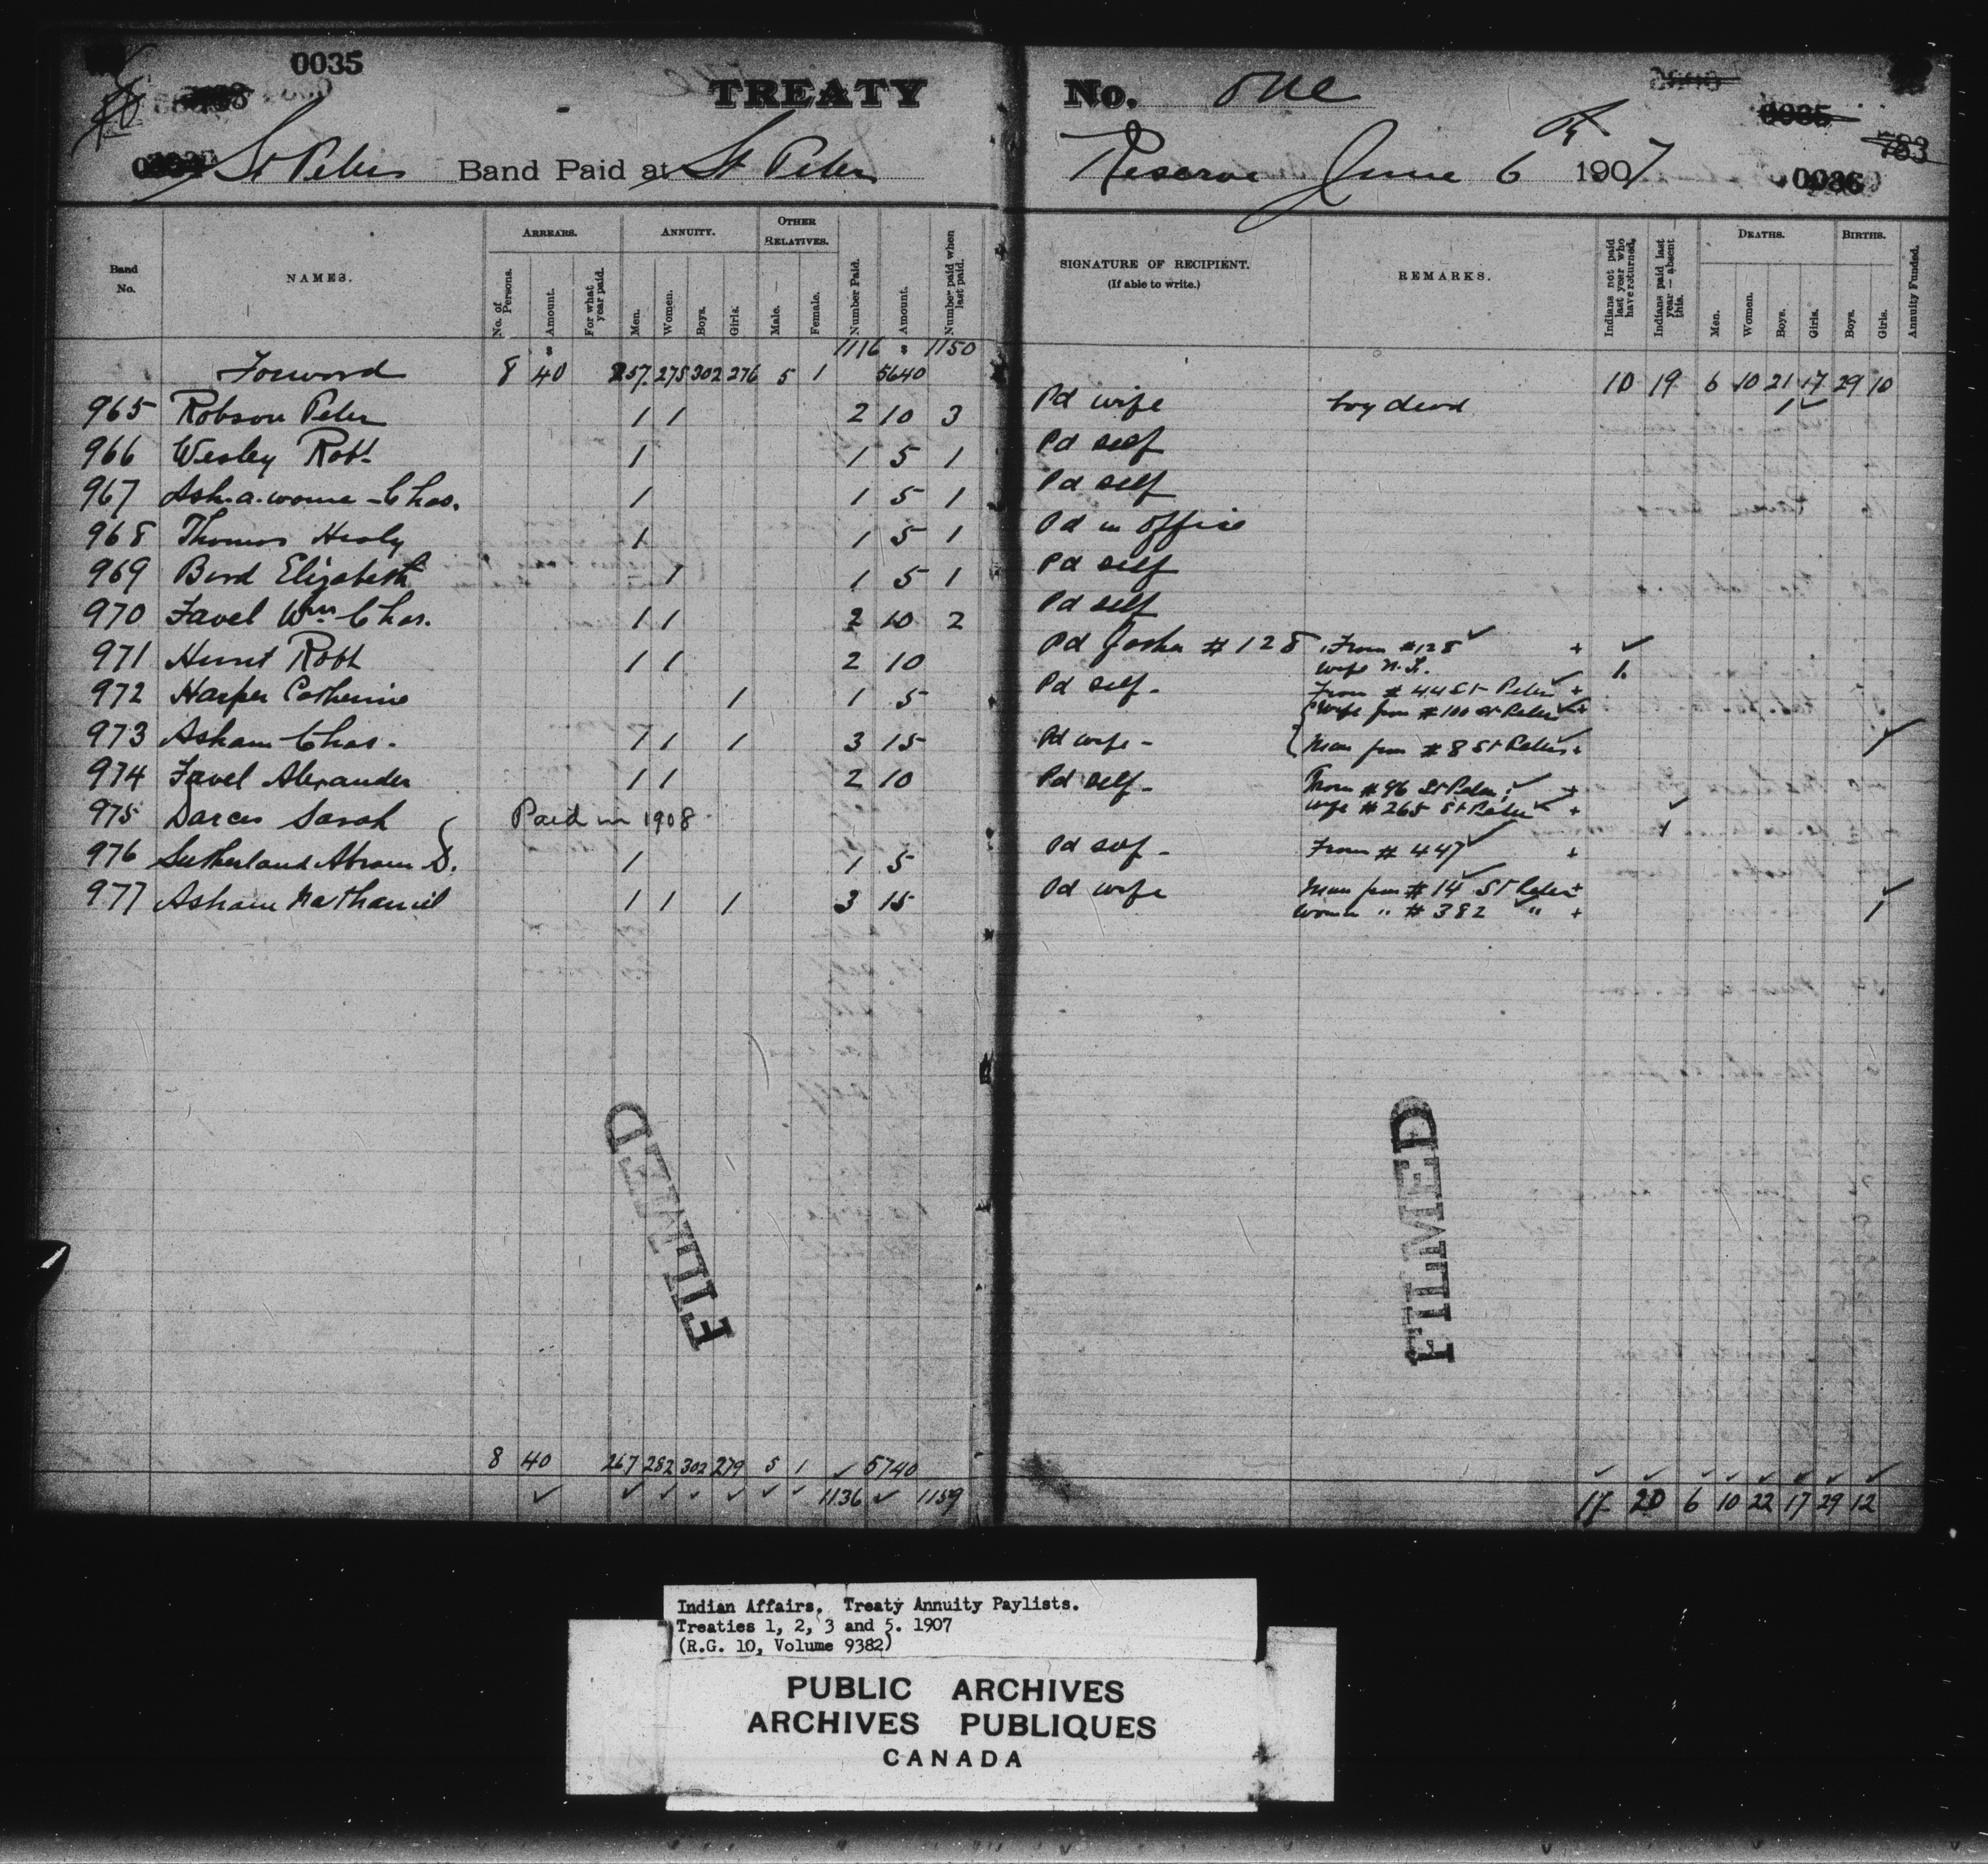 0035
TREATY No. One
0035
783
St Peters Band Paid at St Peters Reserve June 6th 1907
0036
Band No.
NAMES.
ARREARS.
No. of Persons.
Amount.
For what year paid.
ANNUITY.
Men.
Women.
Boys.
Girls.
OTHER RELATIVES.
Male.
Female.
Number Paid.
Amount.
Number paid when last paid.
SIGNATURE OF RECIPIENT.
(If able to write.)
REMARKS.
Indians not paid last year who have returned.
Indians paid last year — absent this.
DEATHS.
Men.
Women.
Boys.
Girls.
BIRTHS.
Boys.
Girls.
Annuity Funded.
1116 $ 1150
Forward 8 $ 40 257 275 302 276 5 1 5640 10 19 6 10 21 17 29 10
965 Robson Peter 1 1 2 10 3 Pd wife boy dead 1 ✓
966 Wesley Robt 1 1 5 1 Pd self
967 Ash-a-wome - Chas. 1 1 5 1 Pd self
968 Thomas Healy 1 1 5 1 Pd in Office
969 Bird Elizabeth 1 1 5 1 Pd self
970 Favel Wm Chas. 1 1 2 10 2 Pd self
971 Hunt Robt 1 1 2 10 Pd Josha # 128 From #128 ✓ + ✓
wife N.T. 1.
972 Harper Catherine 1 1 5 Pd self - From # 44 St Peters ✓ +
{ Wife from #100 St Peters ✓ +
973 Asham Chas. 1 1 1 3 15 Pd wife - { Man from # 8 St Peters + ✓
974 Favel Alexander 1 1 2 10 Pd self - From # 96 St Peters ✓ +
wife # 265 St Peters ✓ + ✓
975 Darces Sarah Paid in 1908 1
976 Sutherland Abram D. 1 1 5 Pd self - From # 447 ✓ +
977 Asham Nathaniel 1 1 1 3 15 Pd wife Man from # 14 St Peters + ✓
Woman " # 382 " + 1
FILMED
FILMED
8 40 267 282 302 279 5 1 ✓ 5740
1136 ✓ 1159 20 6 10 22 17 29 12
Indian Affairs. Treaty Annuity Paylists.
Treaties 1, 2, 3 and 5. 1907
(R.G. 10, Volume 9382)
PUBLIC ARCHIVES
ARCHIVES PUBLIQUES
CANADA